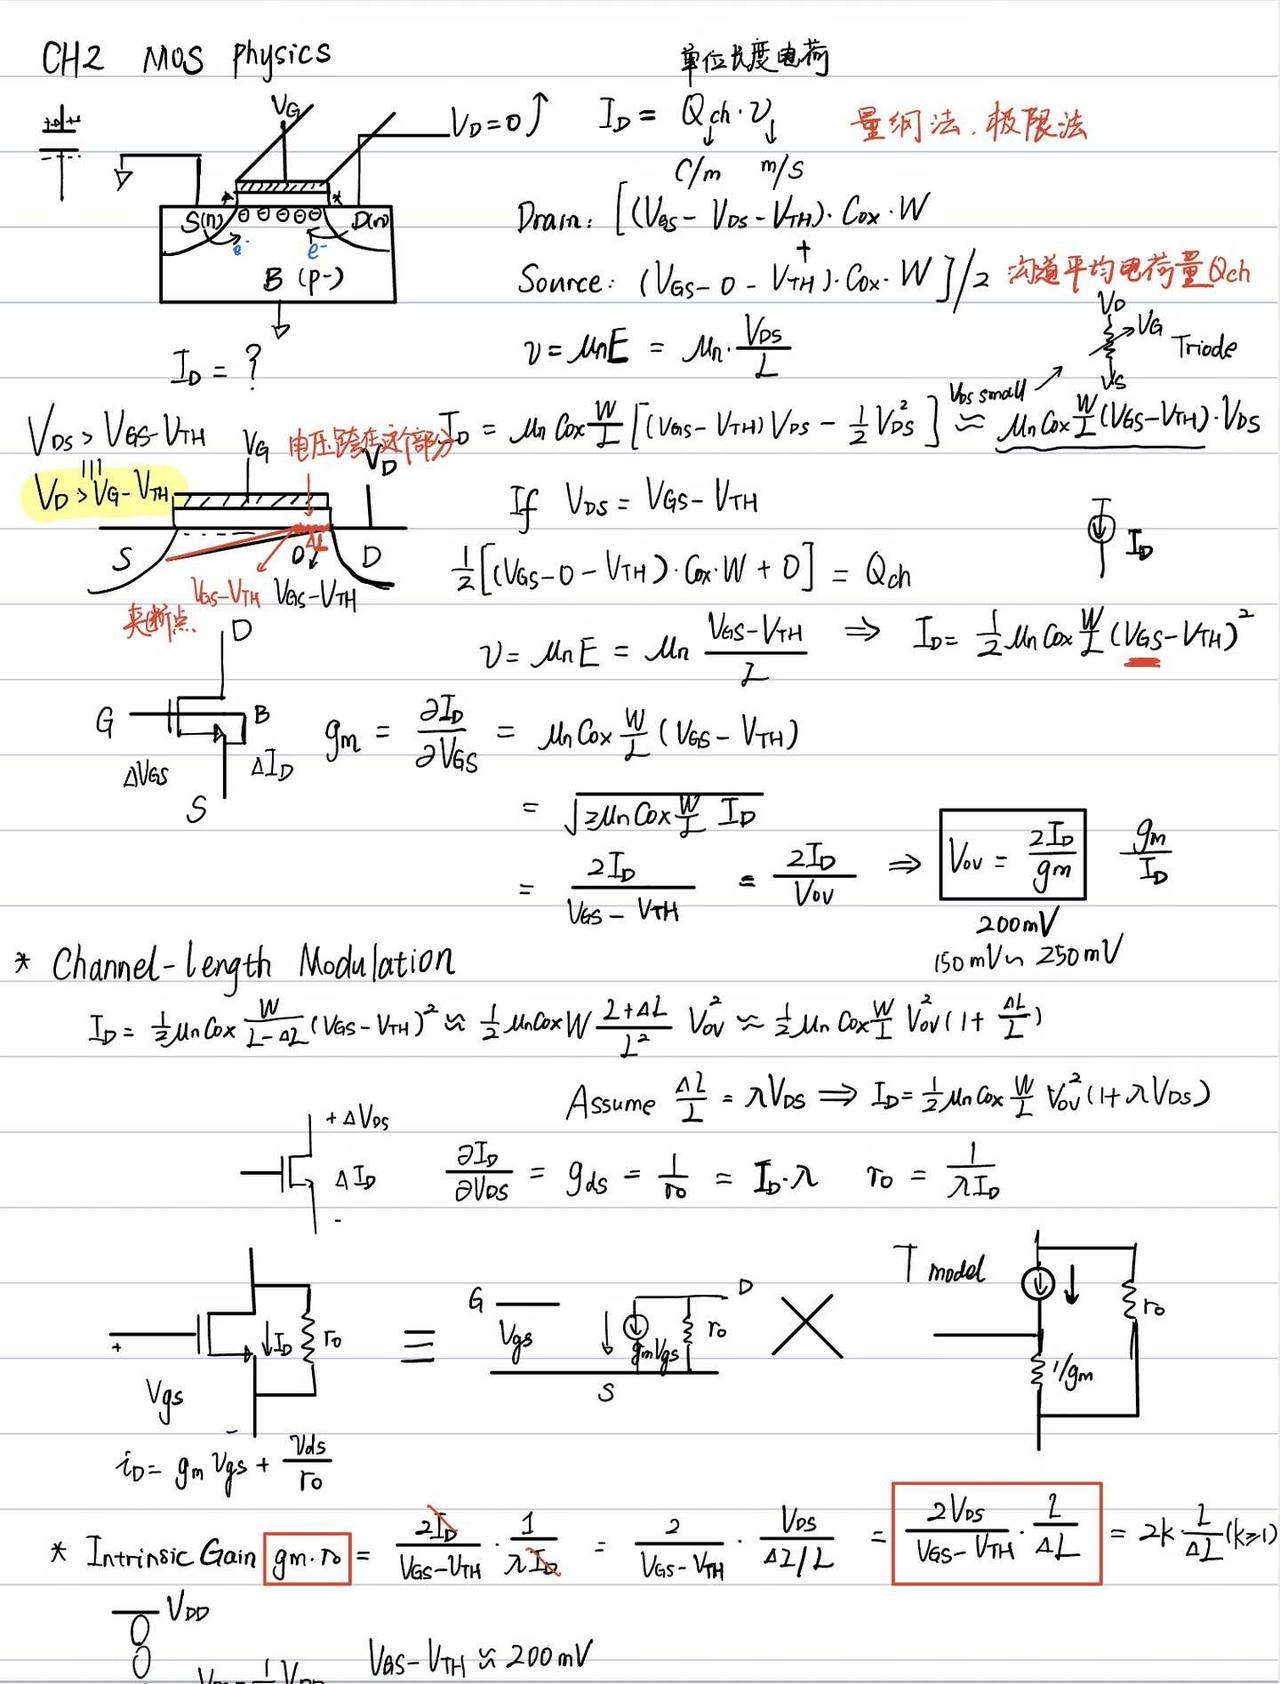 CH2 MOS Physics
单位长度电荷
V_G
V_D=0
I_D = Q_ch · v
量纲法、极限法
C/m m/s
S(n) ⊖ ⊖ ⊖ ⊖ ⊖ D(n)
e⁻ e⁻
B (p-)
Drain: [(V_GS - V_DS - V_TH) · Cox · W
+
Source: (V_GS - 0 - V_TH) · Cox · W]/2 沟道平均电荷量Qch
I_D = ?
v = μnE = μn · V_DS/L
V_D
V_G
V_S
Triode
V_DS > V_GS - V_TH
|||
V_D > V_G - V_TH
I_D = μn Cox W/L [(V_GS - V_TH) V_DS - 1/2 V_DS²] ≈ μn Cox W/L (V_GS - V_TH) · V_DS
V_DS small
V_G 电压跨在这个部分
V_D
If V_DS = V_GS - V_TH
S 0 ΔL D
V_GS - V_TH V_GS - V_TH
夹断点
1/2 [(V_GS - 0 - V_TH) · Cox · W + 0] = Qch
I_D
v = μnE = μn (V_GS - V_TH)/L ⇒ I_D = 1/2 μn Cox W/L (V_GS - V_TH)²
D
G B
ΔV_GS ΔI_D
S
gm = ∂I_D/∂V_GS = μn Cox W/L (V_GS - V_TH)
= √(2μn Cox W/L I_D)
= 2I_D/(V_GS - V_TH) = 2I_D/Vov ⇒ Vov = 2I_D/gm gm/I_D
200mV
150mV ~ 250mV
* Channel-length Modulation
I_D = 1/2 μn Cox W/(L-ΔL) (V_GS - V_TH)² ≈ 1/2 μn Cox W (L+ΔL)/L² Vov² ≈ 1/2 μn Cox W/L Vov² (1 + ΔL/L)
Assume ΔL/L = λV_DS ⇒ I_D = 1/2 μn Cox W/L Vov² (1+λV_DS)
+ΔV_DS
ΔI_D
-
∂I_D/∂V_DS = gds = 1/ro = I_D · λ ro = 1/(λI_D)
+ I_D ro
Vgs
-
≡
G D
Vgs gmVgs ro
S
T model
ro
1/gm
i_D = gm Vgs + Vds/ro
* Intrinsic Gain gm · ro = 2I_D/(V_GS - V_TH) · 1/(λI_D) = 2/(V_GS - V_TH) · V_DS/(ΔL/L) = 2V_DS/(V_GS - V_TH) · L/ΔL = 2k · L/ΔL (k≥1)
V_DD
V_GS - V_TH ≈ 200mV